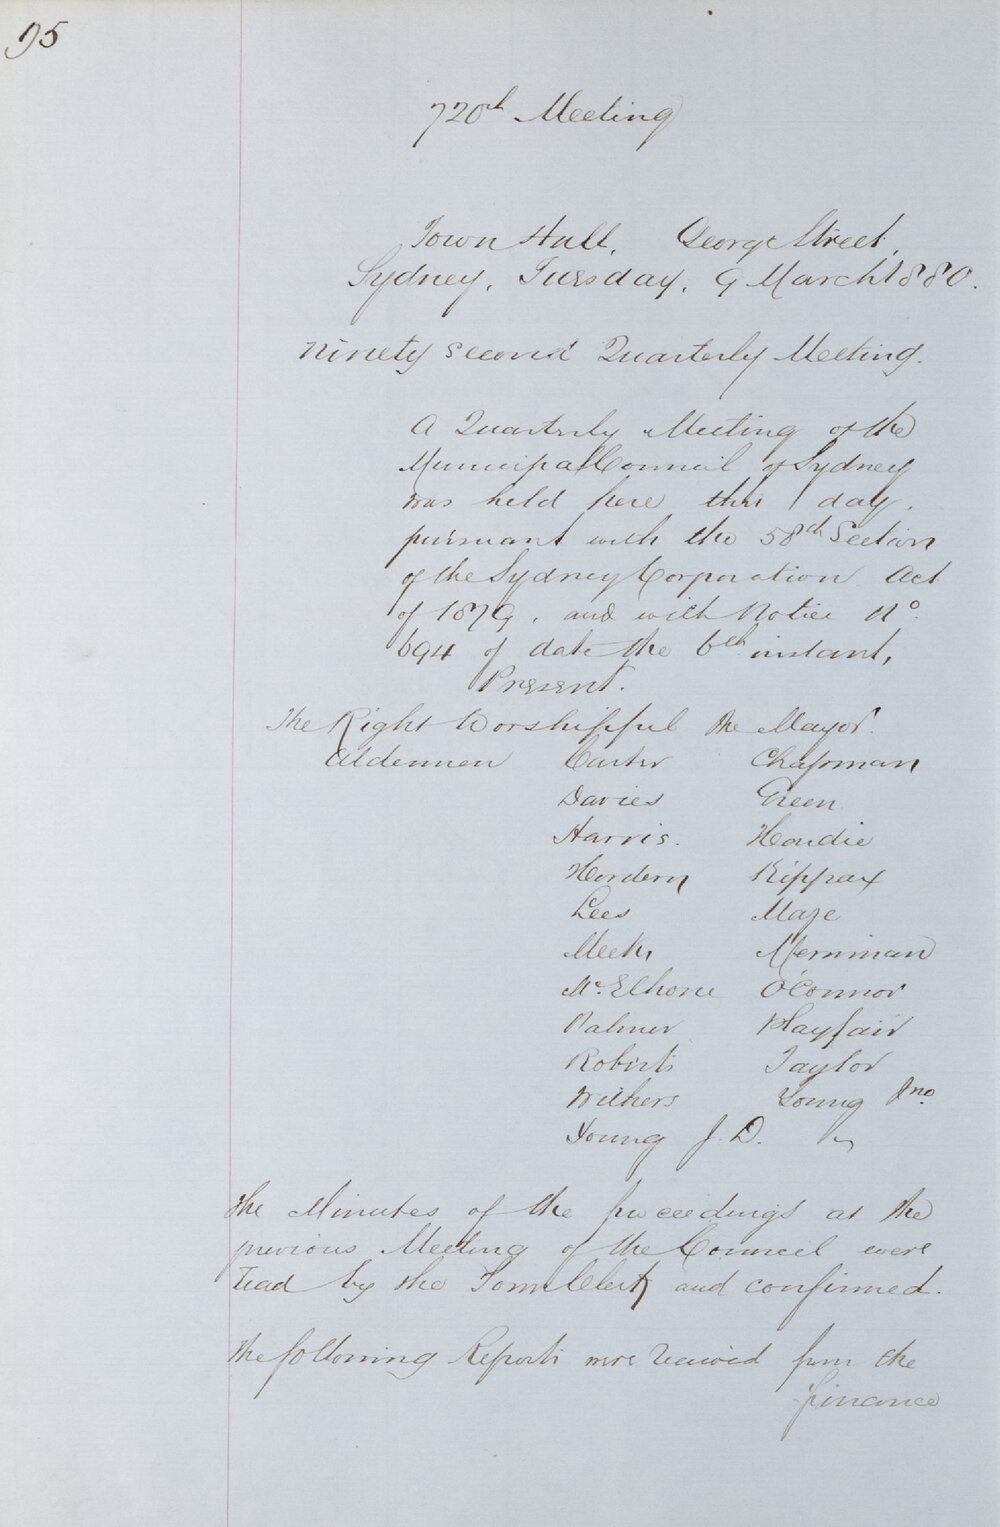 95
720th Meeting
Town Hall, George Street,
Sydney, Tuesday, 9 March 1880.
Ninety second Quarterly Meeting.
A Quarterly Meeting of the
Municipal Council of Sydney
was held here this day.
pursuant with the 58th Section
of the Sydney Corporation Act
of 1879, and with Notice No.
694 of date the 6th instant,
Present.
The Right Worshipful the Mayor.
Aldermen Carter Chapman
Davies Green
Harris. Hardie
Hordern Kippax
Lees Maze
Meeks Merriman
McElhone O'Connor
Palmer Playfair
Roberts Taylor
Withers Young Jno.
Young J. D.
The Minutes of the proceedings at the
previous Meeting of the Council were
read by the Town Clerk and confirmed.
The following Reports were received from the
Finance